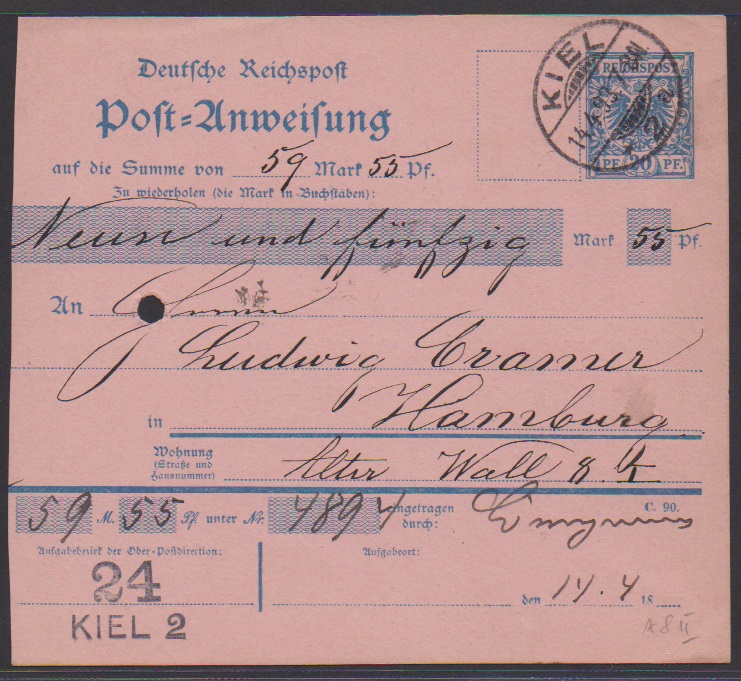 Deutsche Reichspost
Post-Anweisung
auf die Summe von 59 Mark 55 Pf.
Zu wiederholen (die Mark in Buchstaben):
Neun und fünfzig Mark 55 Pf.
An Herrn
Ludwig Cramer
in Hamburg
Wohnung
(Straße und
Hausnummer)
Alter Wall 8
59 M. 55 Pf unter Nr. 4894 eingetragen
durch:
C. 90.
Aufgabebezirk der Ober-Postdirection:
Aufgabeort:
24
KIEL 2
den 14.4 18
A 8 II
KIEL
14.4.
2 a
REICHSPOST
PF. 20 PF.